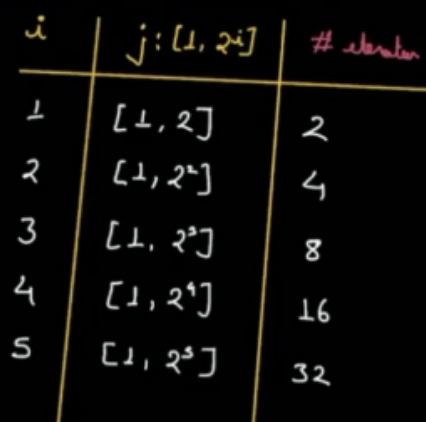 i j : [1, 2^i] # iteration
1 [1, 2] 2
2 [1, 2²] 4
3 [1, 2³] 8
4 [1, 2⁴] 16
5 [1, 2⁵] 32